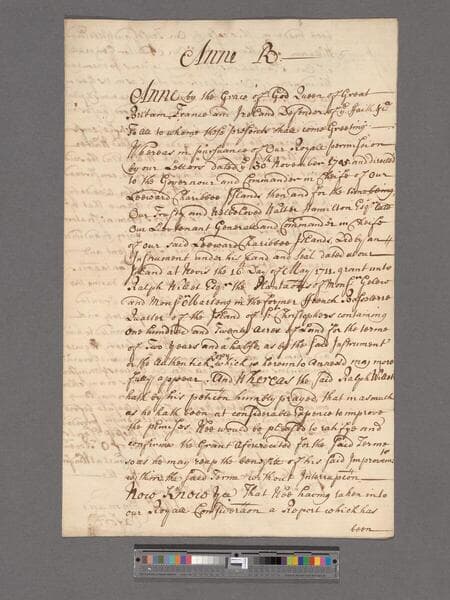 Anne R.
Anne by the Grace of God Queen of Great
Britain France and Ireland Defender of ye faith &c
To all to whome these presents shall come Greeting
Whereas in pursuance of Our Royall permission
by our Letters dated ye 30 November 1705 and directed
to the Governour and Commander in Cheife of Our
Leeward Charibbee Islands then and for the time being
Our Trusty and Welbeloved Walter Hamilton Esqr late
Our Lieutenant Generall and Commander in Cheife
of our said Leeward Charibbee Islands, Did by an
Instrument under his hand and Seal dated in our
Island at Nevis the 16 Day of May 1711. grant unto
Ralph Willet Esqr the Plantations of Monsr
and Monsr in the former french Basseterre
Quarter of the Island of St Christophers containing
one hundred and Twenty Acres of Land for the terme
of Two years and a halfe, as by the said Instrument
or the Authentick Copy which is hereunto Annexed may more
fully appear. And Whereas the said Ralph Willett
hath by his petition humbly prayed that in as much
as he hath been at considerable Expence to improve
the premises Wee would be pleased to ratifye and
confirme the Grant aforerecited for the said Terme
so as he may reap the benefitt of his said Improvemts
within the said Terme without Interruption
Now Know Yee That Wee having taken into
our Royall Consideration a Report which has
been